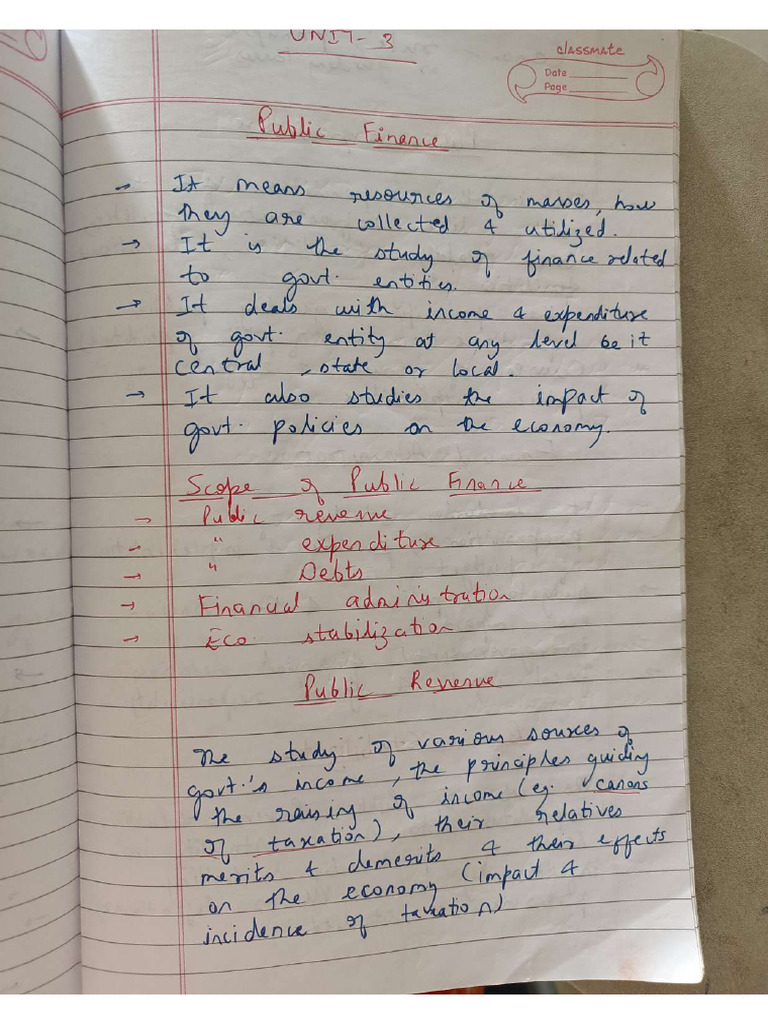 UNIT- 3
classmate
Date
Page
Public Finance
- It means resources of masses, how
they are collected & utilized.
→ It is the study of finance related
to govt. entities.
→ It deals with income & expenditure
of govt. entity at any level be it
central, state or local.
→ It also studies the impact of
govt. policies on the economy.
Scope of Public Finance
→ Public revenue
- " expenditure
→ " Debts
→ Financial administration
→ Eco. stabilization
Public Revenue
The study of various sources of
govt.'s income, the principles guiding
the raising of income (eg. canons
of taxation), their relatives
merits & demerits & their effects
on the economy (impact &
incidence of taxation)